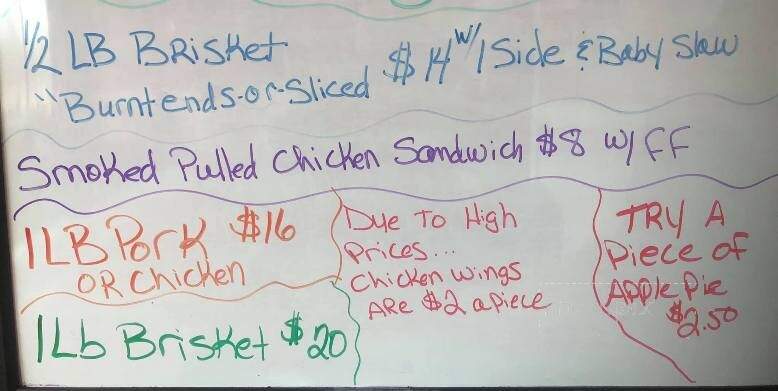 1/2 LB BRisket $14 w/ 1 Side & Baby Slaw
"Burnt ends-or-Sliced
Smoked Pulled Chicken Sandwich $8 w/ FF
1LB Pork $16
OR Chicken
1Lb Brisket $20
Due To High
Prices...
Chicken wings
ARe $2 apiece
TRY A
Piece of
APPle Pie
$2.50